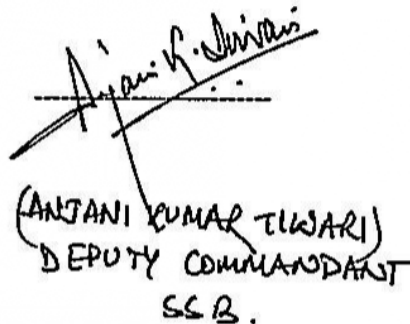 Anjani K. Tiwari
(ANJANI KUMAR TIWARI)
DEPUTY COMMANDANT
SSB.